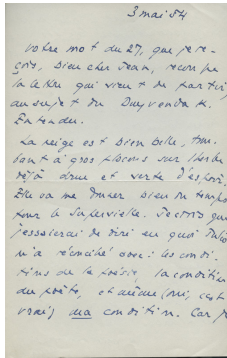 3 mai 54
votre mot du 27, que je re-
çois, bien cher Jean, récompe
la lettre qui vient de partir
au sujet du Duyvendak.
Entendu.
La neige est bien belle, tom-
bant à gros flocons sur l'herbe
déjà drue et verte d'espoir.
Elle va me donner bien du temps
pour le Supervielle. Je crois que
j'essaierai de dire en quoi Julio
m'a réconcilié avec : les condi-
tions de la poésie, la condition
du poète, et même (oui, c'est
vrai) ma condition. Car j